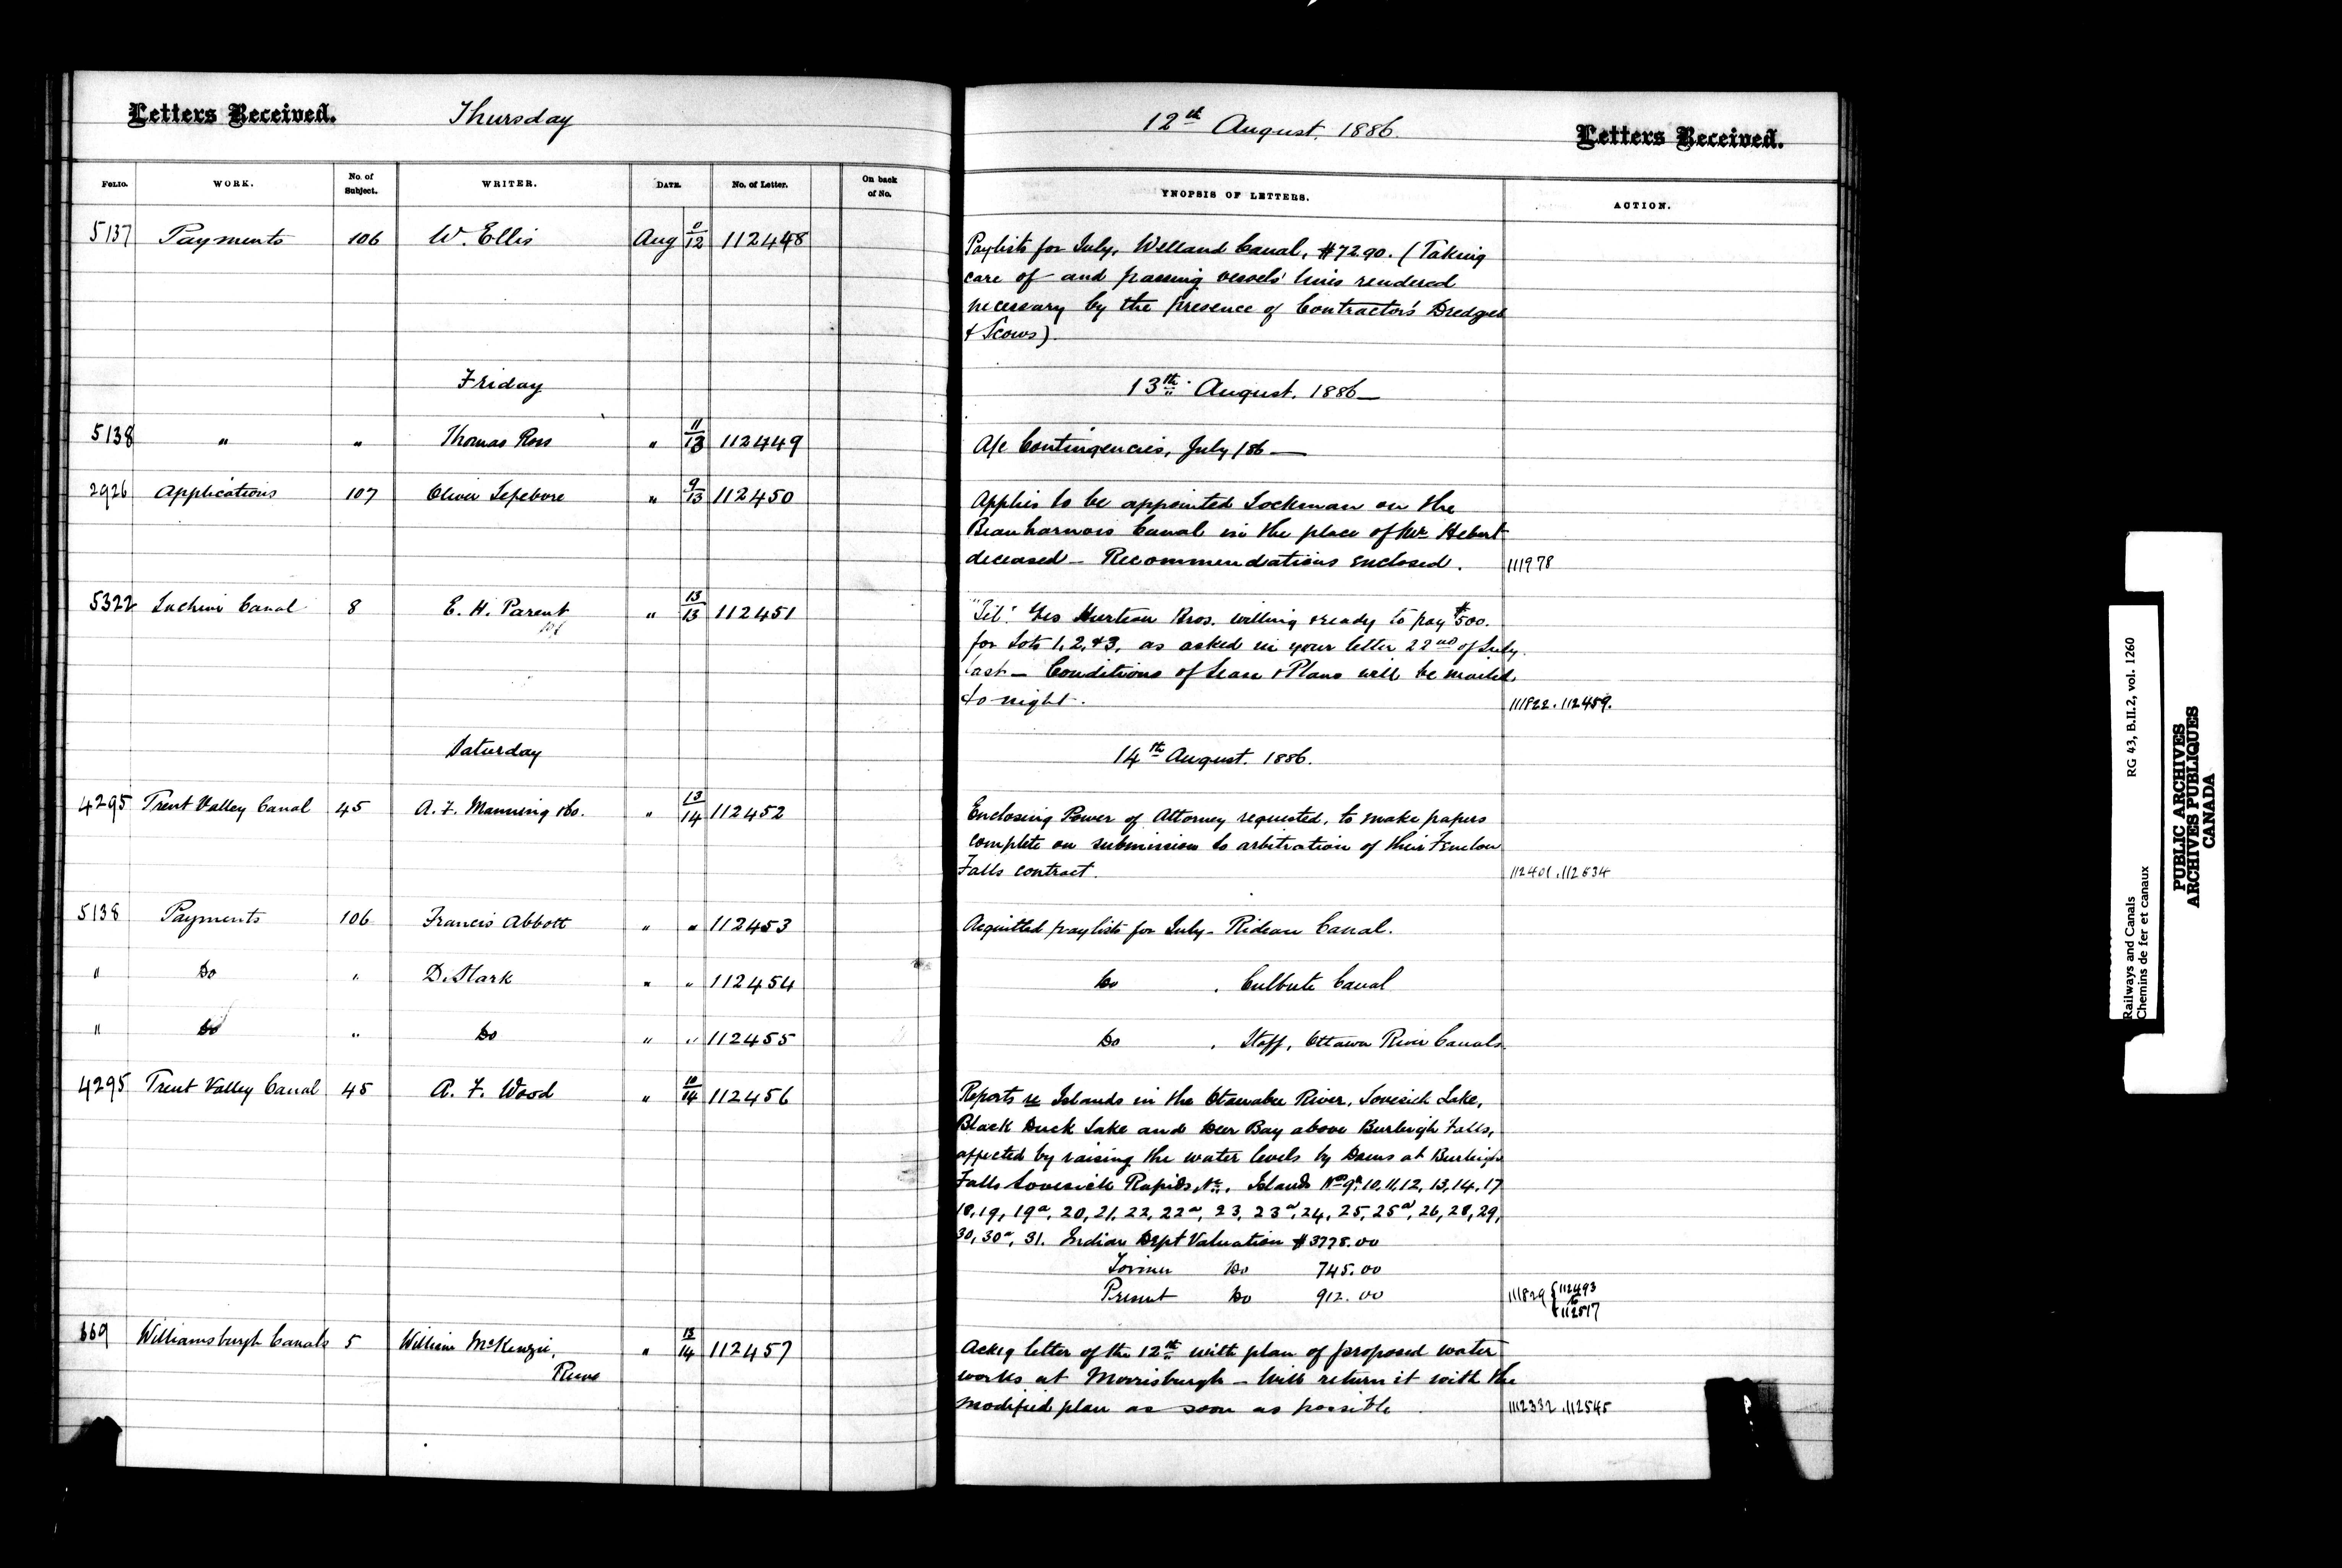 Letters Received. Thursday 12th August, 1886. Letters Received.
FOLIO. WORK. No. of Subject. WRITER. DATE. No. of Letter. On back of No. YNOPSIS OF LETTERS. ACTION.
5137 Payments 106 W. Ellis Aug 12 112448 Paylists for July, Welland Canal, $72.90. (Taking
care of and passing vessels' lines rendered
necessary by the presence of Contractor's Dredges
& Scows).
Friday 13th August. 1886
5138 " " Thomas Ross " 11/13 112449 A/c Contingencies, July /86
2926 Applications 107 Oliver Lefebvre " 9/13 112450 Applies to be appointed Lockman on the
Beauharnois Canal in the place of Mr. Hebert
deceased - Recommendations enclosed. 111978
5322 Lachine Canal 8 E. H. Parent " 13/13 112451 "Tel." Yes Hurteau Bros. willing & ready to pay $500.
for Lots 1, 2, & 3, as asked in your letter 22nd of July
last - Conditions of Lease & Plans will be mailed
to night. 111822. 112459.
Saturday 14th August. 1886.
4295 Trent Valley Canal 45 A. F. Manning & Co. " 13/14 112452 Enclosing Power of Attorney requested, to make papers
complete on submission to arbitration of their Fenelon
Falls contract. 112401. 112634
5138 Payments 106 Francis Abbott " " 112453 Acquitted paylists for July - Rideau Canal.
" Do " D. Stark " " 112454 Do . Culbute Canal
" Do " Do " " 112455 Do . Staff, Ottawa River Canals.
4295 Trent Valley Canal 45 A. F. Wood " 10/14 112456 Reports re Islands in the Otanabee River, Lovesick Lake,
Black Duck Lake and Deer Bay above Burleigh Falls,
affected by raising the water levels by Dams at Burleigh
Falls Lovesick Rapids, &c. Islands Nos 9a, 10, 11, 12, 13, 14, 17
18, 19, 19a, 20, 21, 22, 22a, 23, 23a, 24, 25, 25a, 26, 28, 29,
30, 30a, 31. Indian Dept Valuation $3778.00
Former Do 745.00
Present Do 912.00 111829 { 112493 to 112517
669 Williamsburgh Canals 5 William McKenzie, " 13/14 112457 Ackg letter of the 12th with plan of proposed water
Reeve works at Morrisburgh - Will return it with the
modified plan as soon as possible. 112332. 112545
Railways and Canals RG 43, B.II.2, vol. 1260
Chemins de fer et canaux
PUBLIC ARCHIVES
ARCHIVES PUBLIQUES
CANADA